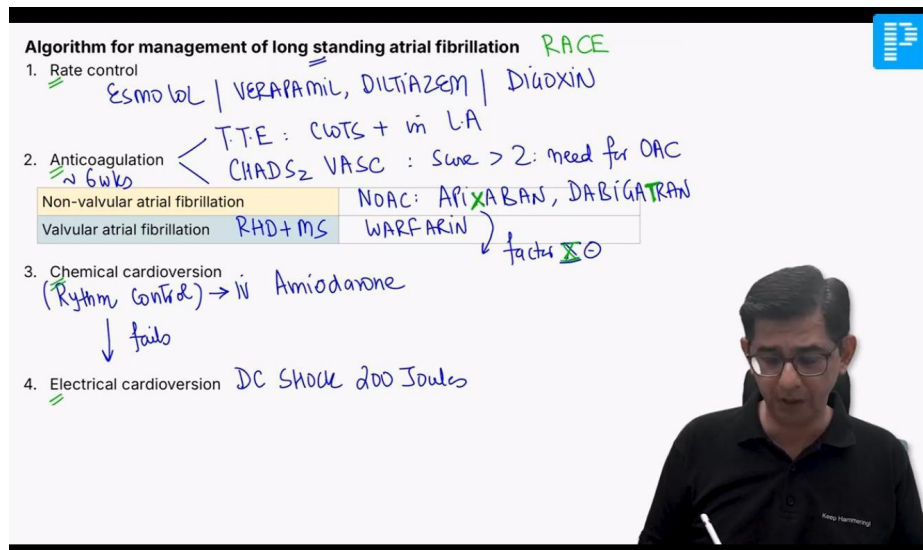 Algorithm for management of long standing atrial fibrillation RACE
1. Rate control
ESMOLOL | VERAPAMIL, DILTIAZEM | DIGOXIN
T.T.E : CLOTS + in L.A
2. Anticoagulation
CHADS2 VASC : Score > 2 : need for OAC
~ 6 wks
Non-valvular atrial fibrillation NOAC: APIXABAN, DABIGATRAN
Valvular atrial fibrillation RHD + MS WARFARIN
factor X ⊖
3. Chemical cardioversion
(Rythm Control) → iv Amiodarone
↓ fails
4. Electrical cardioversion DC SHOCK 200 Joules
Keep Hammering!